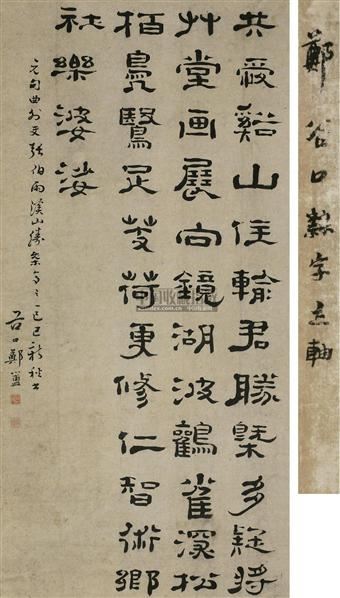 鄭谷口隸字立軸
共愛谿山住輸君勝槩多疑將
艸堂画展向鏡湖波鸛雀深松
栢鳧鷖足芰荷更修仁智術鄉
社樂婆娑
元句曲外史張伯雨溪山勝槩之一己巳新秋書
谷口鄭簠